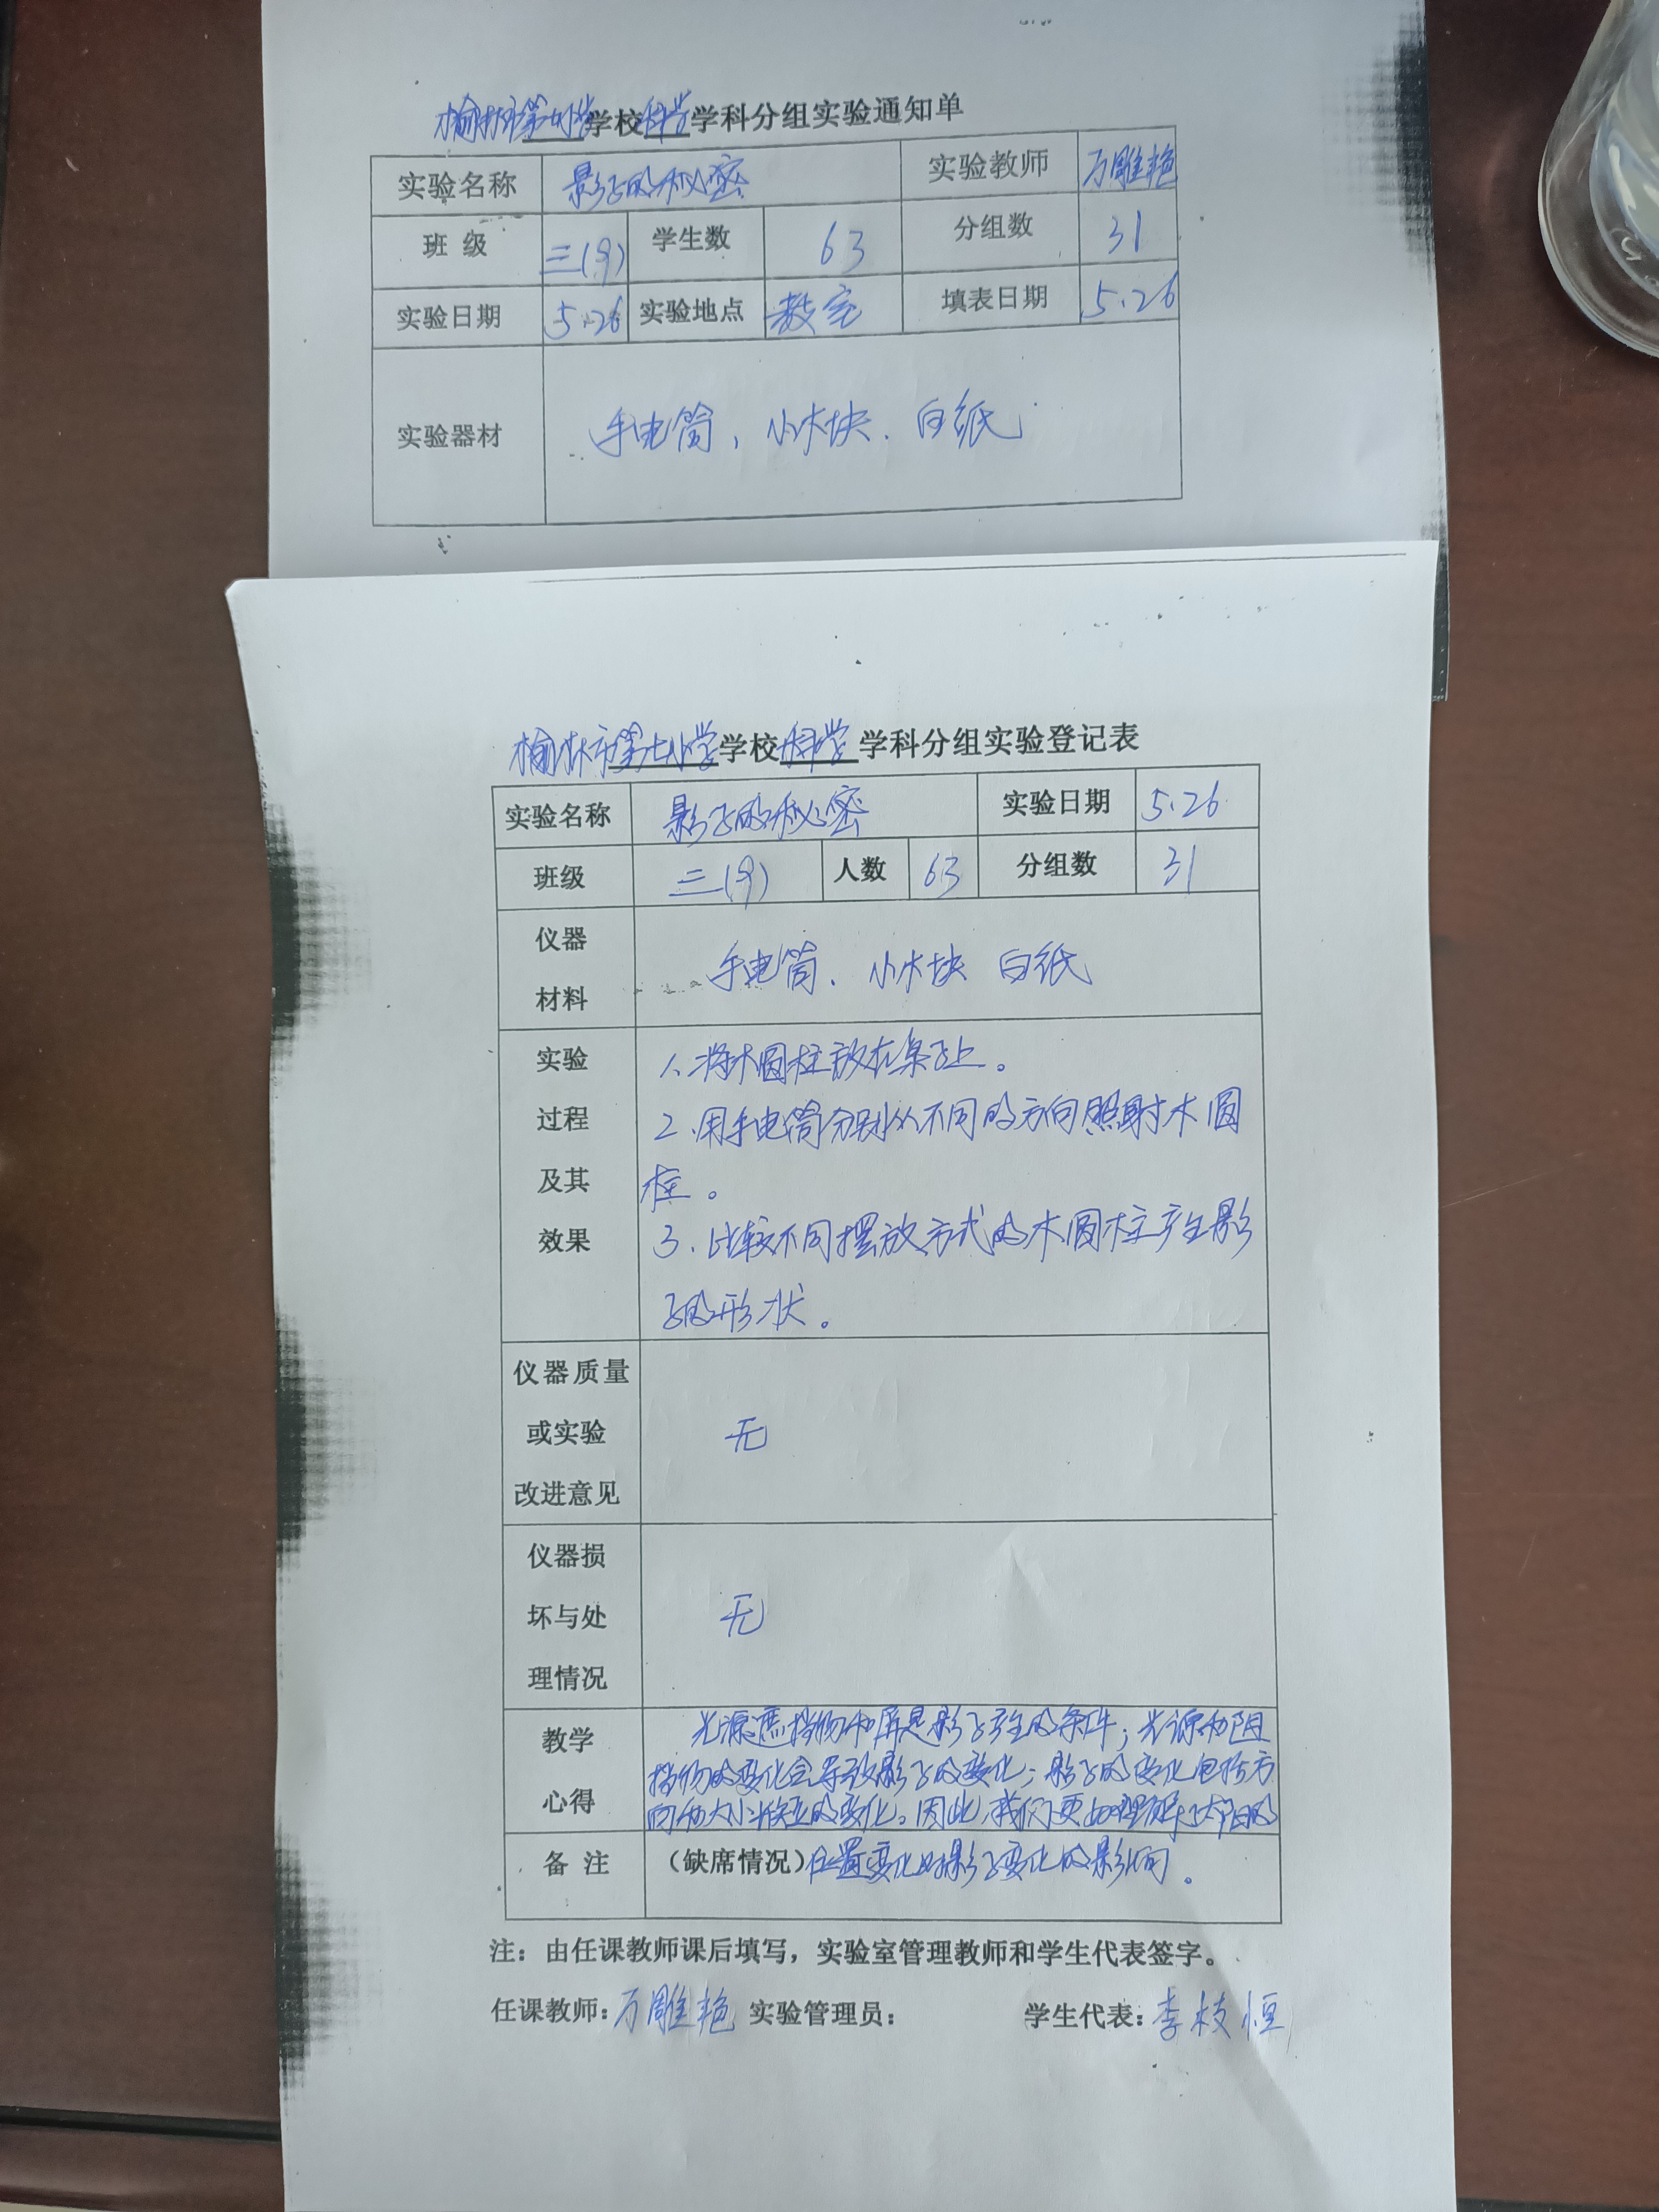 榆林市第七小学学校科学学科分组实验通知单
实验名称 影子的秘密 实验教师 万雕艳
班 级 三(9) 学生数 63 分组数 31
实验日期 5.26 实验地点 教室 填表日期 5.26
实验器材 手电筒、小木块、白纸
榆林市第七小学学校科学学科分组实验登记表
实验名称 影子的秘密 实验日期 5.26
班级 三(9) 人数 63 分组数 31
仪器
材料
手电筒、小木块 白纸
实验
过程
及其
效果
1、将木圆柱放在桌子上。
2、用手电筒分别从不同的方向照射木圆
柱。
3、比较不同摆放方式的木圆柱产生影
子的形状。
仪器质量
或实验
改进意见
无
仪器损
坏与处
理情况
无
教学
心得
光源遮挡物和屏是影子产生的条件；光源和阻
挡物的变化会导致影子的变化；影子的变化包括方
向和大小长短的变化。因此，我们更加理解了太阳的
备 注 (缺席情况)位置变化对影子变化的影响。
注：由任课教师课后填写，实验室管理教师和学生代表签字。
任课教师：万雕艳 实验管理员： 学生代表：李枝恒